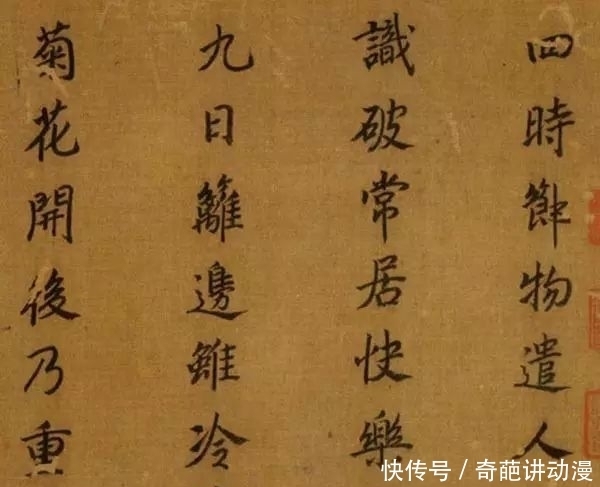 四時節物遣人
識破常居快樂
九日籬邊雖冷
菊花開後乃重
快传号／奇葩讲动漫